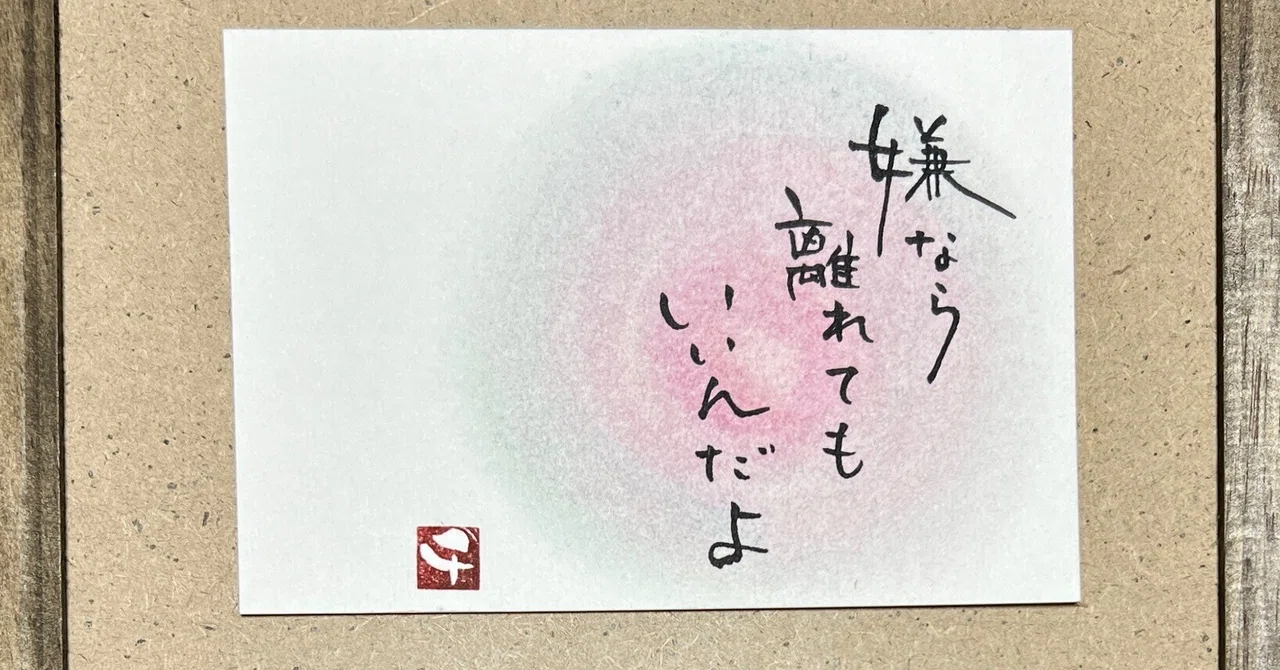 嫌なら
離れても
いいんだよ
千